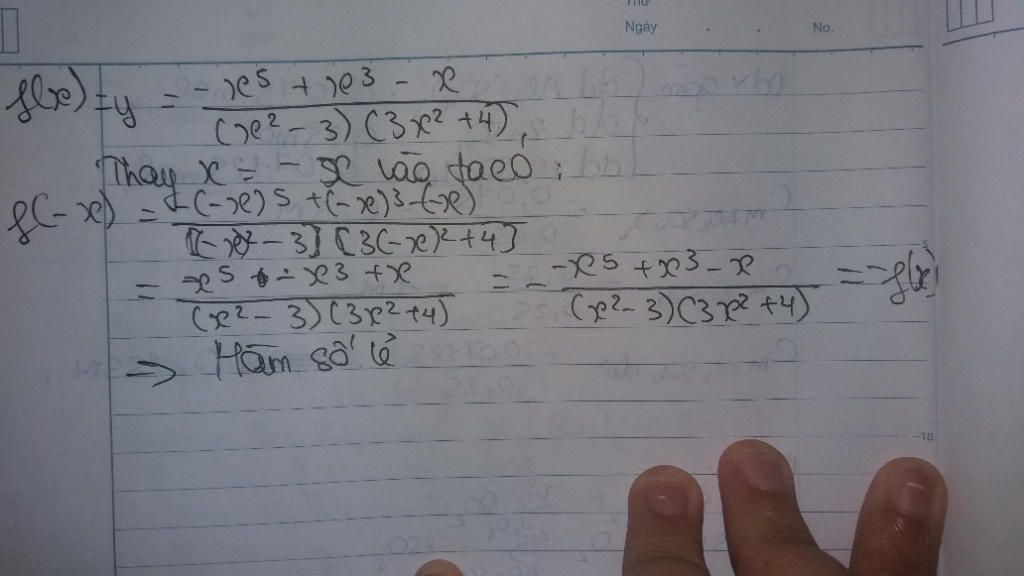 Thứ
Ngày . . No.
f(x) = y = \frac{-x^5 + x^3 - x}{(x^2 - 3)(3x^2 + 4)},
Thay x = -x vào ta có :
f(-x) = \frac{-(-x)^5 + (-x)^3 - (-x)}{[(-x)^2 - 3][3(-x)^2 + 4]}
= \frac{x^5 - x^3 + x}{(x^2 - 3)(3x^2 + 4)} = - \frac{-x^5 + x^3 - x}{(x^2 - 3)(3x^2 + 4)} = -f(x)
⇒ Hàm số lẻ
5
10